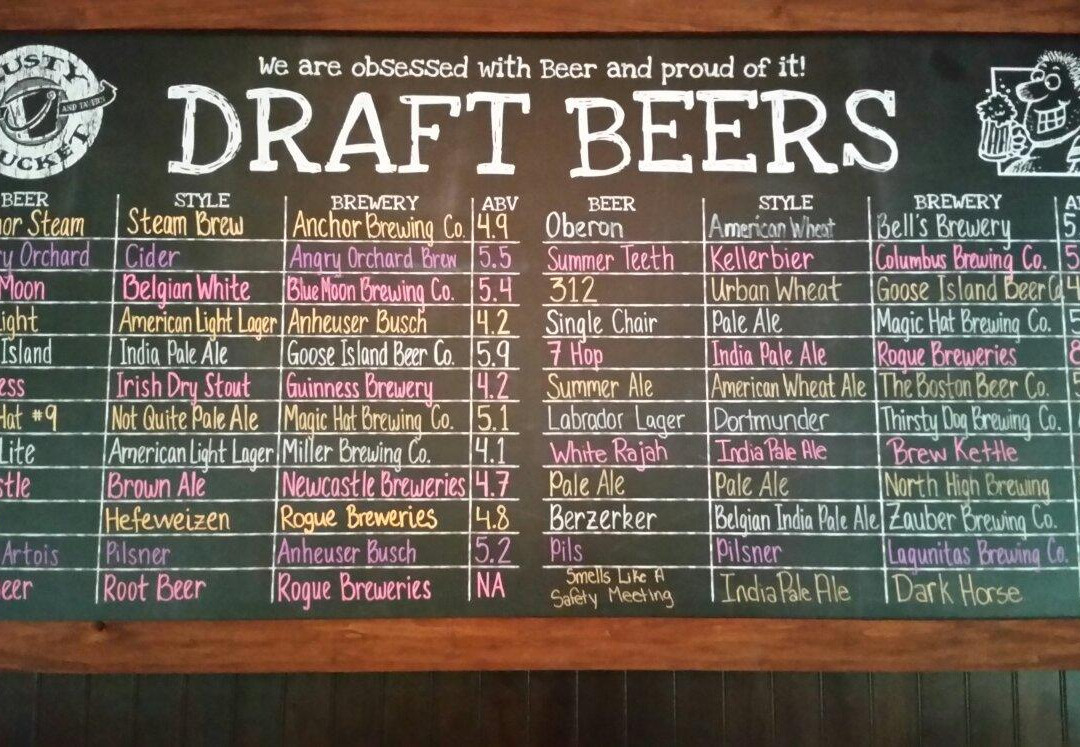 USTY
AND TAVERN
UCKET
We are obsessed with Beer and proud of it!
DRAFT BEERS
BEER STYLE BREWERY ABV
or Steam Steam Brew Anchor Brewing Co. 4.9
ry Orchard Cider Angry Orchard Brew 5.5
Moon Belgian White Blue Moon Brewing Co. 5.4
ight American Light Lager Anheuser Busch 4.2
Island India Pale Ale Goose Island Beer Co. 5.9
ess Irish Dry Stout Guinness Brewery 4.2
Hat #9 Not Quite Pale Ale Magic Hat Brewing Co. 5.1
Lite American Light Lager Miller Brewing Co. 4.1
stle Brown Ale Newcastle Breweries 4.7
Hefeweizen Rogue Breweries 4.8
Artois Pilsner Anheuser Busch 5.2
eer Root Beer Rogue Breweries NA
BEER STYLE BREWERY A
Oberon American Wheat Bell's Brewery 5
Summer Teeth Kellerbier Columbus Brewing Co. 5
312 Urban Wheat Goose Island Beer Co 4
Single Chair Pale Ale Magic Hat Brewing Co. 5
7 Hop India Pale Ale Rogue Breweries 8
Summer Ale American Wheat Ale The Boston Beer Co. 5
Labrador Lager Dortmunder Thirsty Dog Brewing Co.
White Rajah India Pale Ale Brew Kettle
Pale Ale Pale Ale North High Brewing
Berzerker Belgian India Pale Ale Zauber Brewing Co.
Pils Pilsner Lagunitas Brewing Co.
Smells Like A
Safety Meeting India Pale Ale Dark Horse